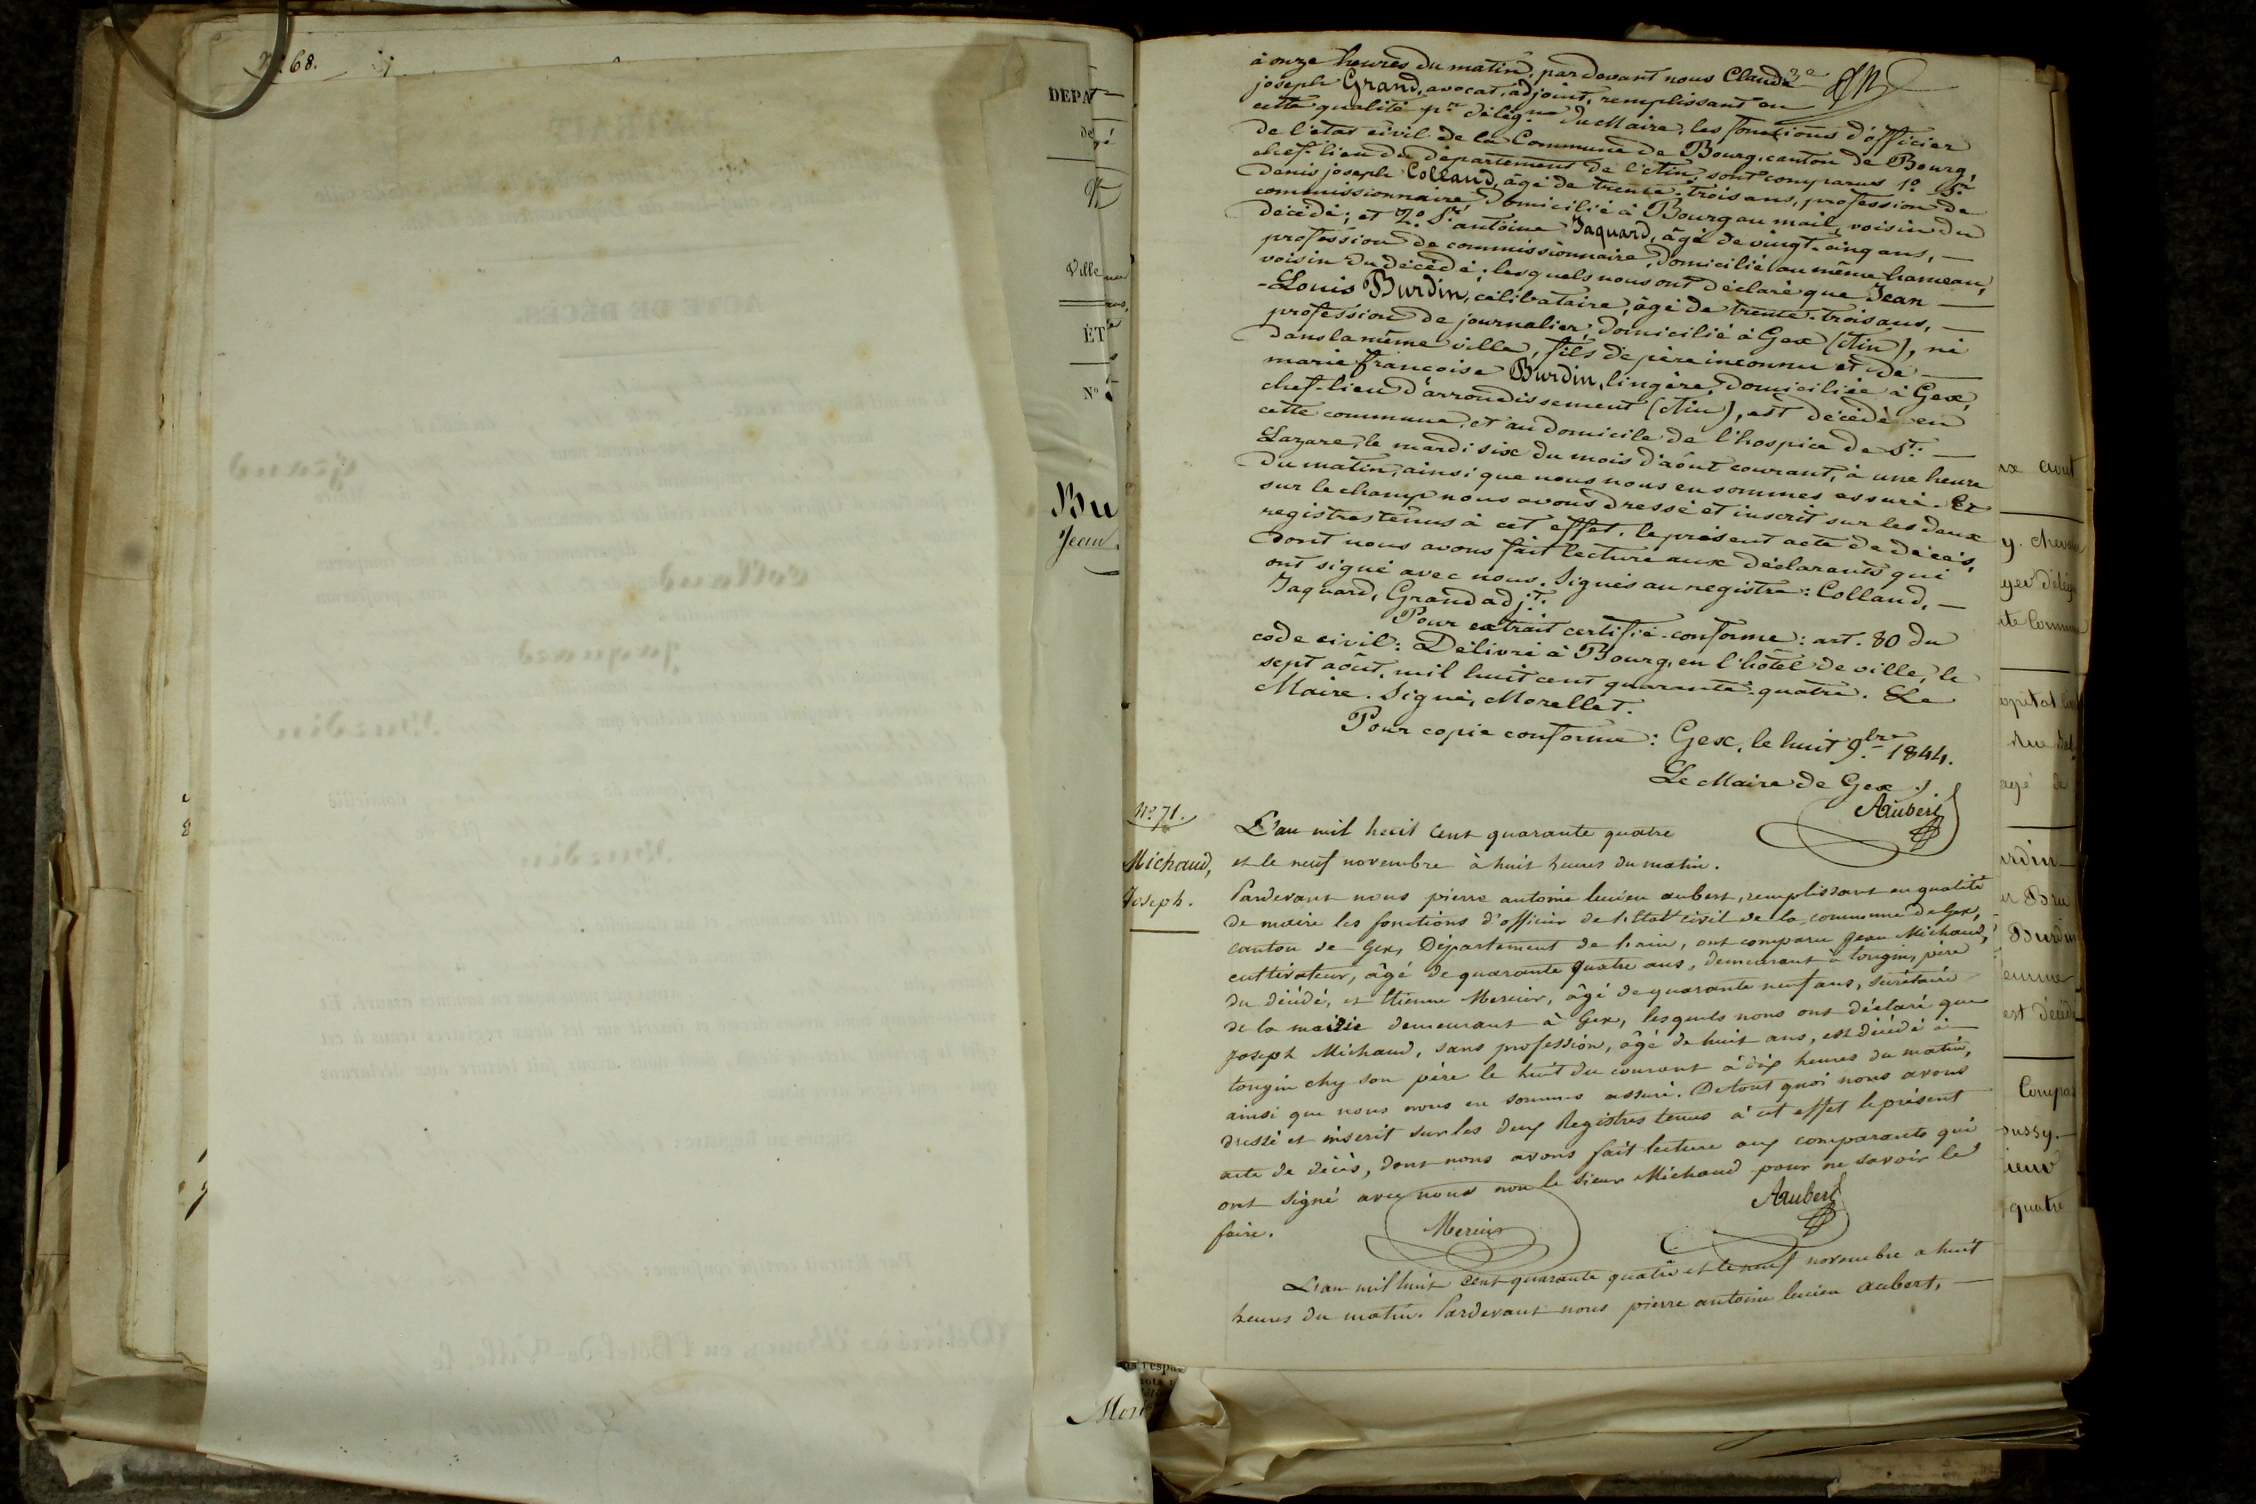 N° 68.
DEPA
Ville
ÉT
N°
Bu
Jean
à onze heures du matin, pardevant nous Claude
joseph Grand, avocat, adjoint, remplissant en
cette qualité pr. délég.on du Maire, les fonctions d'officier
de l'état civil de la Commune de Bourg, canton de Bourg,
chef-lieu du département de l'Ain, sont comparus 1.o Sr.
denis joseph Collaud, âgé de trente-trois ans, profession de
commissionnaire, domicilié à Bourg au mail, voisin du
décédé; et 2.o Sr. antoine Jaquard, âgé de vingt-cinq ans, —
profession de commissionnaire, domicilié au même hameau,
voisin du décédé; lesquels nous ont déclaré que Jean —
-Louis Burdin, célibataire, âgé de trente-trois ans, —
profession de journalier, domicilié à Gex (Ain), né
dans la même ville, fils de père inconnu et de —
marie françoise Burdin, lingère, domiciliée à Gex,
chef-lieu d'arrondissement (Ain), est décédé en
cette commune, et au domicile de l'hospice de St. —
Lazare, le mardi six du mois d'août courant, à une heure
du matin, ainsi que nous nous en sommes assuré. Et
sur le champ nous avons dressé et inscrit sur les deux
registres tenus à cet effet, le présent acte de décès,
dont nous avons fait lecture aux déclarants qui
ont signé avec nous. Signés au registre: Collaud, —
Jaquard, Grand adjt.
Pour extrait certifié conforme: art. 80 du
code civil: Délivré à Bourg, en l'hôtel de ville, le
sept août, mil huit cent quarante-quatre. Le
Maire. Signé, Morellet.
Pour copie conforme: Gex, le huit 9bre 1844.
Le Maire de Gex.
Aubert
N° 71.
Michaud,
Joseph.
L'an mil huit cent quarante quatre
et le neuf novembre à huit heures du matin.
Pardevant nous pierre antoine lucien aubert, remplissant en qualité
de maire les fonctions d'officier de l'Etat civil de la commune de Gex,
canton de Gex, Département de l'ain, ont comparu Jean Michaud,
cultivateur, âgé de quarante quatre ans, demeurant à tougin, père
du décédé, et Etienne Mercier, âgé de quarante neuf ans, secrétaire
de la mairie demeurant à Gex, lesquels nous ont déclaré que
Joseph Michaud, sans profession, âgé de huit ans, est décédé à
tougin chez son père le huit du courant à dix heures du matin,
ainsi que nous nous en sommes assuré. De tout quoi nous avons
dressé et inscrit sur les deux Registres tenus à cet effet le présent
acte de décès, dont nous avons fait lecture aux comparants qui
ont signé avec nous non le sieur Michaud pour ne savoir le
faire.
Mercier
Aubert
L'an mil huit cent quarante quatre et le neuf novembre a huit
heures du matin. Pardevant nous pierre antoine lucien aubert, —
Compa
quatre